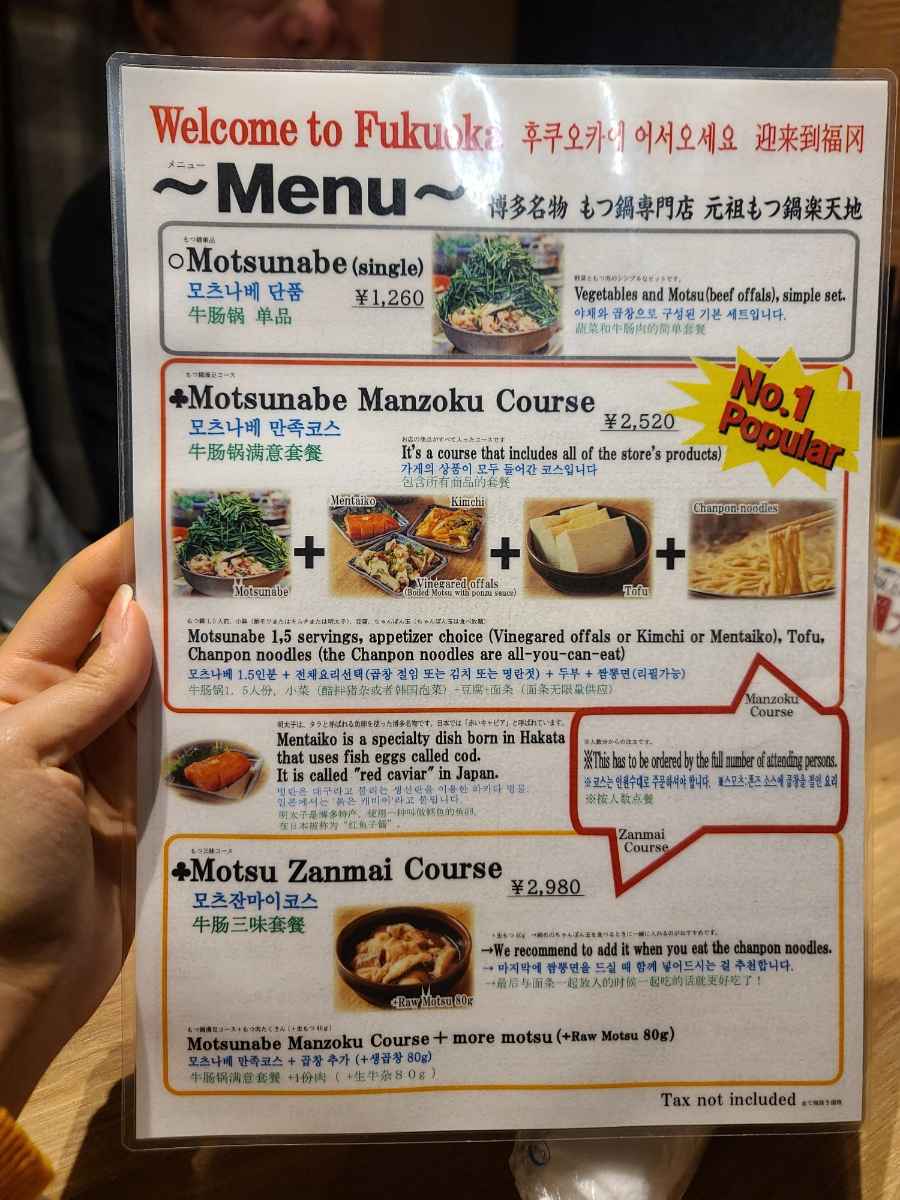 Welcome to Fukuoka 후쿠오카에 어서오세요 迎来到福冈
メニュー
～Menu～ 博多名物 もつ鍋専門店 元祖もつ鍋楽天地
もつ鍋単品
○Motsunabe (single)
모츠나베 단품 ¥1,260
牛肠锅 单品
野菜ともつ肉のシンプルなセットです。
Vegetables and Motsu(beef offals), simple set.
야채와 곱창으로 구성된 기본 세트입니다.
蔬菜和牛肠肉的简单套餐
No.1
Popular
もつ鍋満足コース
♣Motsunabe Manzoku Course
모츠나베 만족코스 ¥2,520
牛肠锅满意套餐
お店の商品がすべて入ったコースです
It's a course that includes all of the store's products)
가게의 상품이 모두 들어간 코스입니다
包含所有商品的套餐
Motsunabe
+
Mentaiko Kimchi
Vinegared offals
(Boiled Motsu with ponzu sauce)
+
Tofu
+
Chanpon noodles
Motsunabe 1,5 servings, appetizer choice (Vinegared offals or Kimchi or Mentaiko), Tofu,
Chanpon noodles (the Chanpon noodles are all-you-can-eat)
모츠나베 1.5인분 + 전채요리선택(곱창 절임 또는 김치 또는 명란젓) + 두부 + 짬뽕면(리필가능)
牛肠锅1．5人份，小菜（醋拌猪杂或者韩国泡菜）+豆腐+面条（面条无限量供应）
明太子は、タラと呼ばれる魚卵を使った博多名物です。日本では「赤いキャビア」と呼ばれています。
Mentaiko is a specialty dish born in Hakata
that uses fish eggs called cod.
It is called "red caviar" in Japan.
명란은 대구라고 불리는 생선란을 이용한 하카타 명물.
일본에서는 '붉은 캐비아'라고 불립니다.
明太子是博多特产，使用一种叫做鳕鱼的鱼卵。
在日本被称为“红鱼子酱”。
Manzoku
Course
※人数分からの注文です。
※This has to be ordered by the full number of attending persons.
※코스는 인원수대로 주문하셔야 합니다.
※按人数点餐
Zanmai
Course
もつ三昧コース
♣Motsu Zanmai Course
모츠잔마이코스 ¥2,980
牛肠三味套餐
+Raw Motsu 80g
→We recommend to add it when you eat the chanpon noodles.
→ 마지막에 짬뽕면을 드실 때 함께 넣어드시는 걸 추천합니다.
→最后与面条一起放入的时候一起吃的话就更好吃了！
Motsunabe Manzoku Course + more motsu (+Raw Motsu 80g)
모츠나베 만족코스 + 곱창 추가 (+생곱창 80g)
牛肠锅满意套餐 +1份肉（ +生牛杂８０ｇ ）
Tax not included